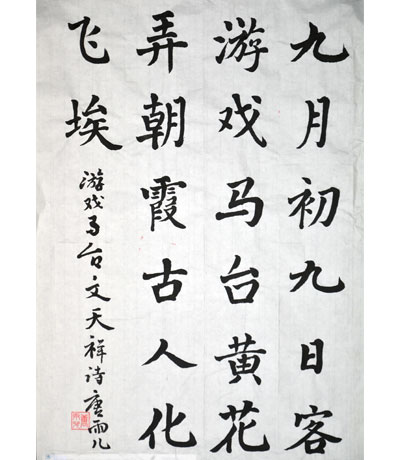 九月初九日客
游戏马台黄花
弄朝霞古人化
飞埃
游戏马台文天祥诗唐雨儿